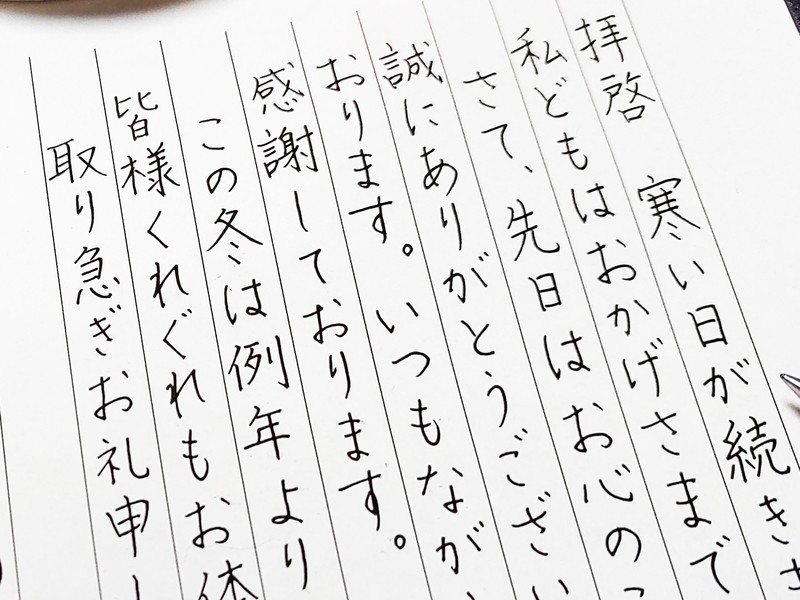 拝啓 寒い日が続きま
私どもはおかげさまで
さて、先日はお心のこ
誠にありがとうござい
おります。いつもなが
感謝しております。
この冬は例年より
皆様くれぐれもお体
取り急ぎお礼申し